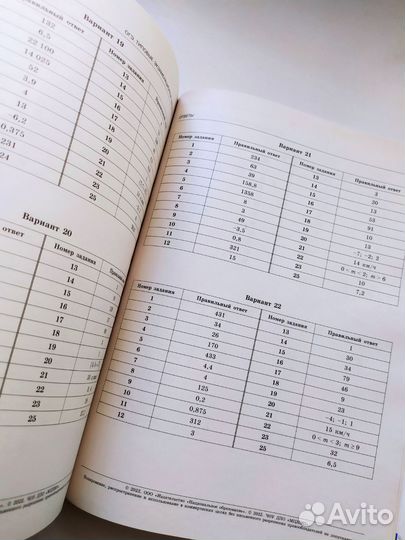 ОГЭ. ТИПОВЫЕ ЭКЗАМЕ
Вариант 19
Правильный ответ Номер задания
132 13
6,5 14
22 100 15
14 025 16
52 17
3,9 18
13 19
6,2 20
0,375 21
231 22
24 23
25
Вариант 20
Номер задания
13
14
15
16
17
18
19
20
21
22
23
25
ОТВЕТЫ
Вариант 21
Номер задания Правильный ответ Номер задания Правильный ответ
1 234 13 3
2 63 14 30
3 39 15 13
4 158,8 16 53
5 1358 17 91
6 8 18 10
7 3 19 13
8 49 20 –7; –2; 2
9 –3,5 21 14 км/ч
10 0,8 22 0 < m < 2; m > 6
11 321 23 10
12 15 25 7,2
Вариант 22
Номер задания Правильный ответ Номер задания Правильный ответ
1 431 13 1
2 34 14 30
3 26 15 34
4 170 16 79
5 433 17 46
6 4,4 18 9
7 4 19 23
8 125 20 –4; –1; 1
9 0,2 21 15 км/ч
10 0,875 22 0 < m < 3; m ≥ 9
11 312 23 32
12 3 25 6,5
© 2022. ООО «Издательство «Национальное образование» © 2022. ЧОУ ДПО
Копирование, распространение и использование в коммерческих целях без письменного разрешения правообладателей не допускается
Avito